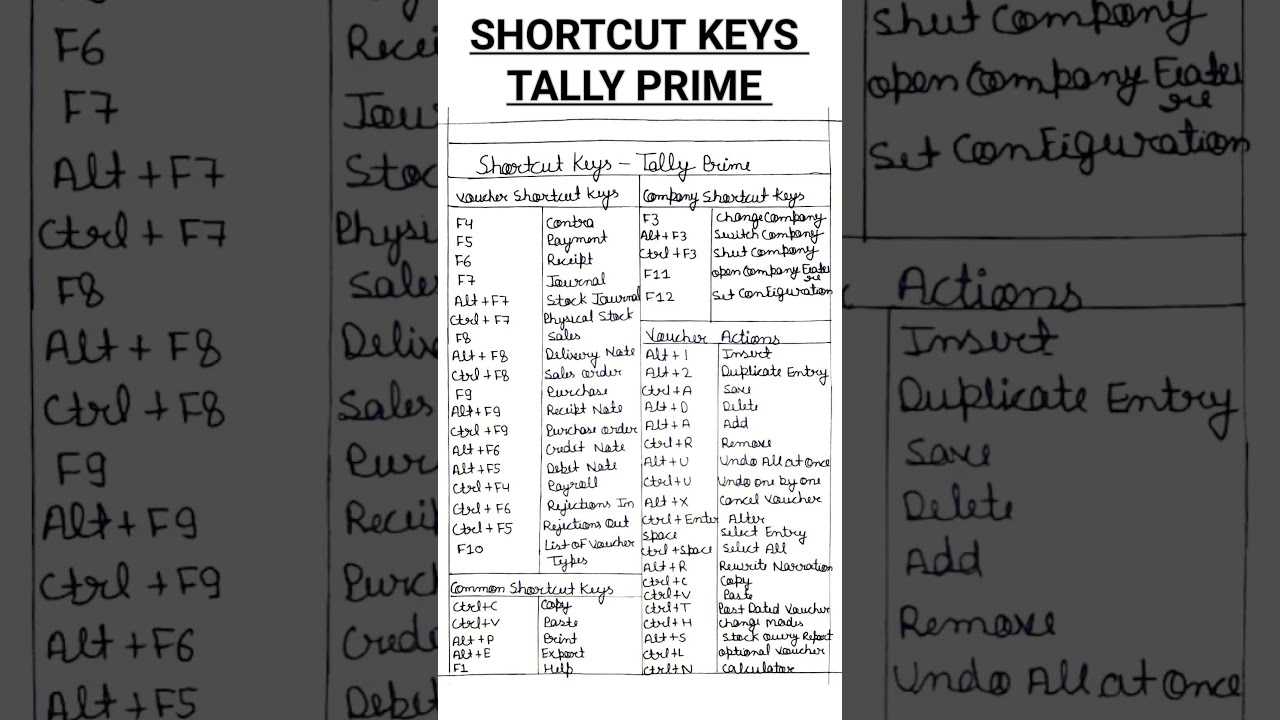 SHORTCUT KEYS
TALLY PRIME
Shortcut Keys - Tally Prime
Voucher Shortcut Keys
F4 Contra
F5 Payment
F6 Receipt
F7 Journal
Alt+F7 Stock Journal
Ctrl+F7 Physical Stock
F8 Sales
Alt+F8 Delivery Note
Ctrl+F8 Sales order
F9 Purchase
Alt+F9 Receipt Note
Ctrl+F9 Purchase order
Alt+F6 Credit Note
Alt+F5 Debit Note
Ctrl+F4 Payroll
Ctrl+F6 Rejections In
Ctrl+F5 Rejections Out
F10 List of Voucher
Types
Common Shortcut Keys
Ctrl+C Copy
Ctrl+V Paste
Alt+P Print
Alt+E Export
F1 Help
Company Shortcut Keys
F3 Change Company
Alt+F3 Switch Company
Ctrl+F3 Shut Company
F11 open Company
F12 Set Configuration
Voucher Actions
Alt+1 Insert
Alt+2 Duplicate Entry
Ctrl+A Save
Alt+D Delete
Alt+A Add
Ctrl+R Remove
Alt+U Undo All at Once
Ctrl+U Undo one by one
Alt+X Cancel Voucher
Ctrl+Enter Alter
Space Select Entry
Ctrl+Space Select All
Alt+R Rewrite Narration
Ctrl+C Copy
Ctrl+V Paste
Ctrl+T Post Dated Voucher
Ctrl+H change modes
Alt+S Stock query Report
Ctrl+L optional Voucher
Ctrl+N Calculator
F6
F7
Alt+F7
Ctrl+F7
F8
Alt+F8
Ctrl+F8
F9
Alt+F9
Ctrl+F9
Alt+F6
Alt+F5
Shut Company
open Company
Set Configuration
Actions
Insert
Duplicate Entry
Save
Delete
Add
Remove
Undo All at Once